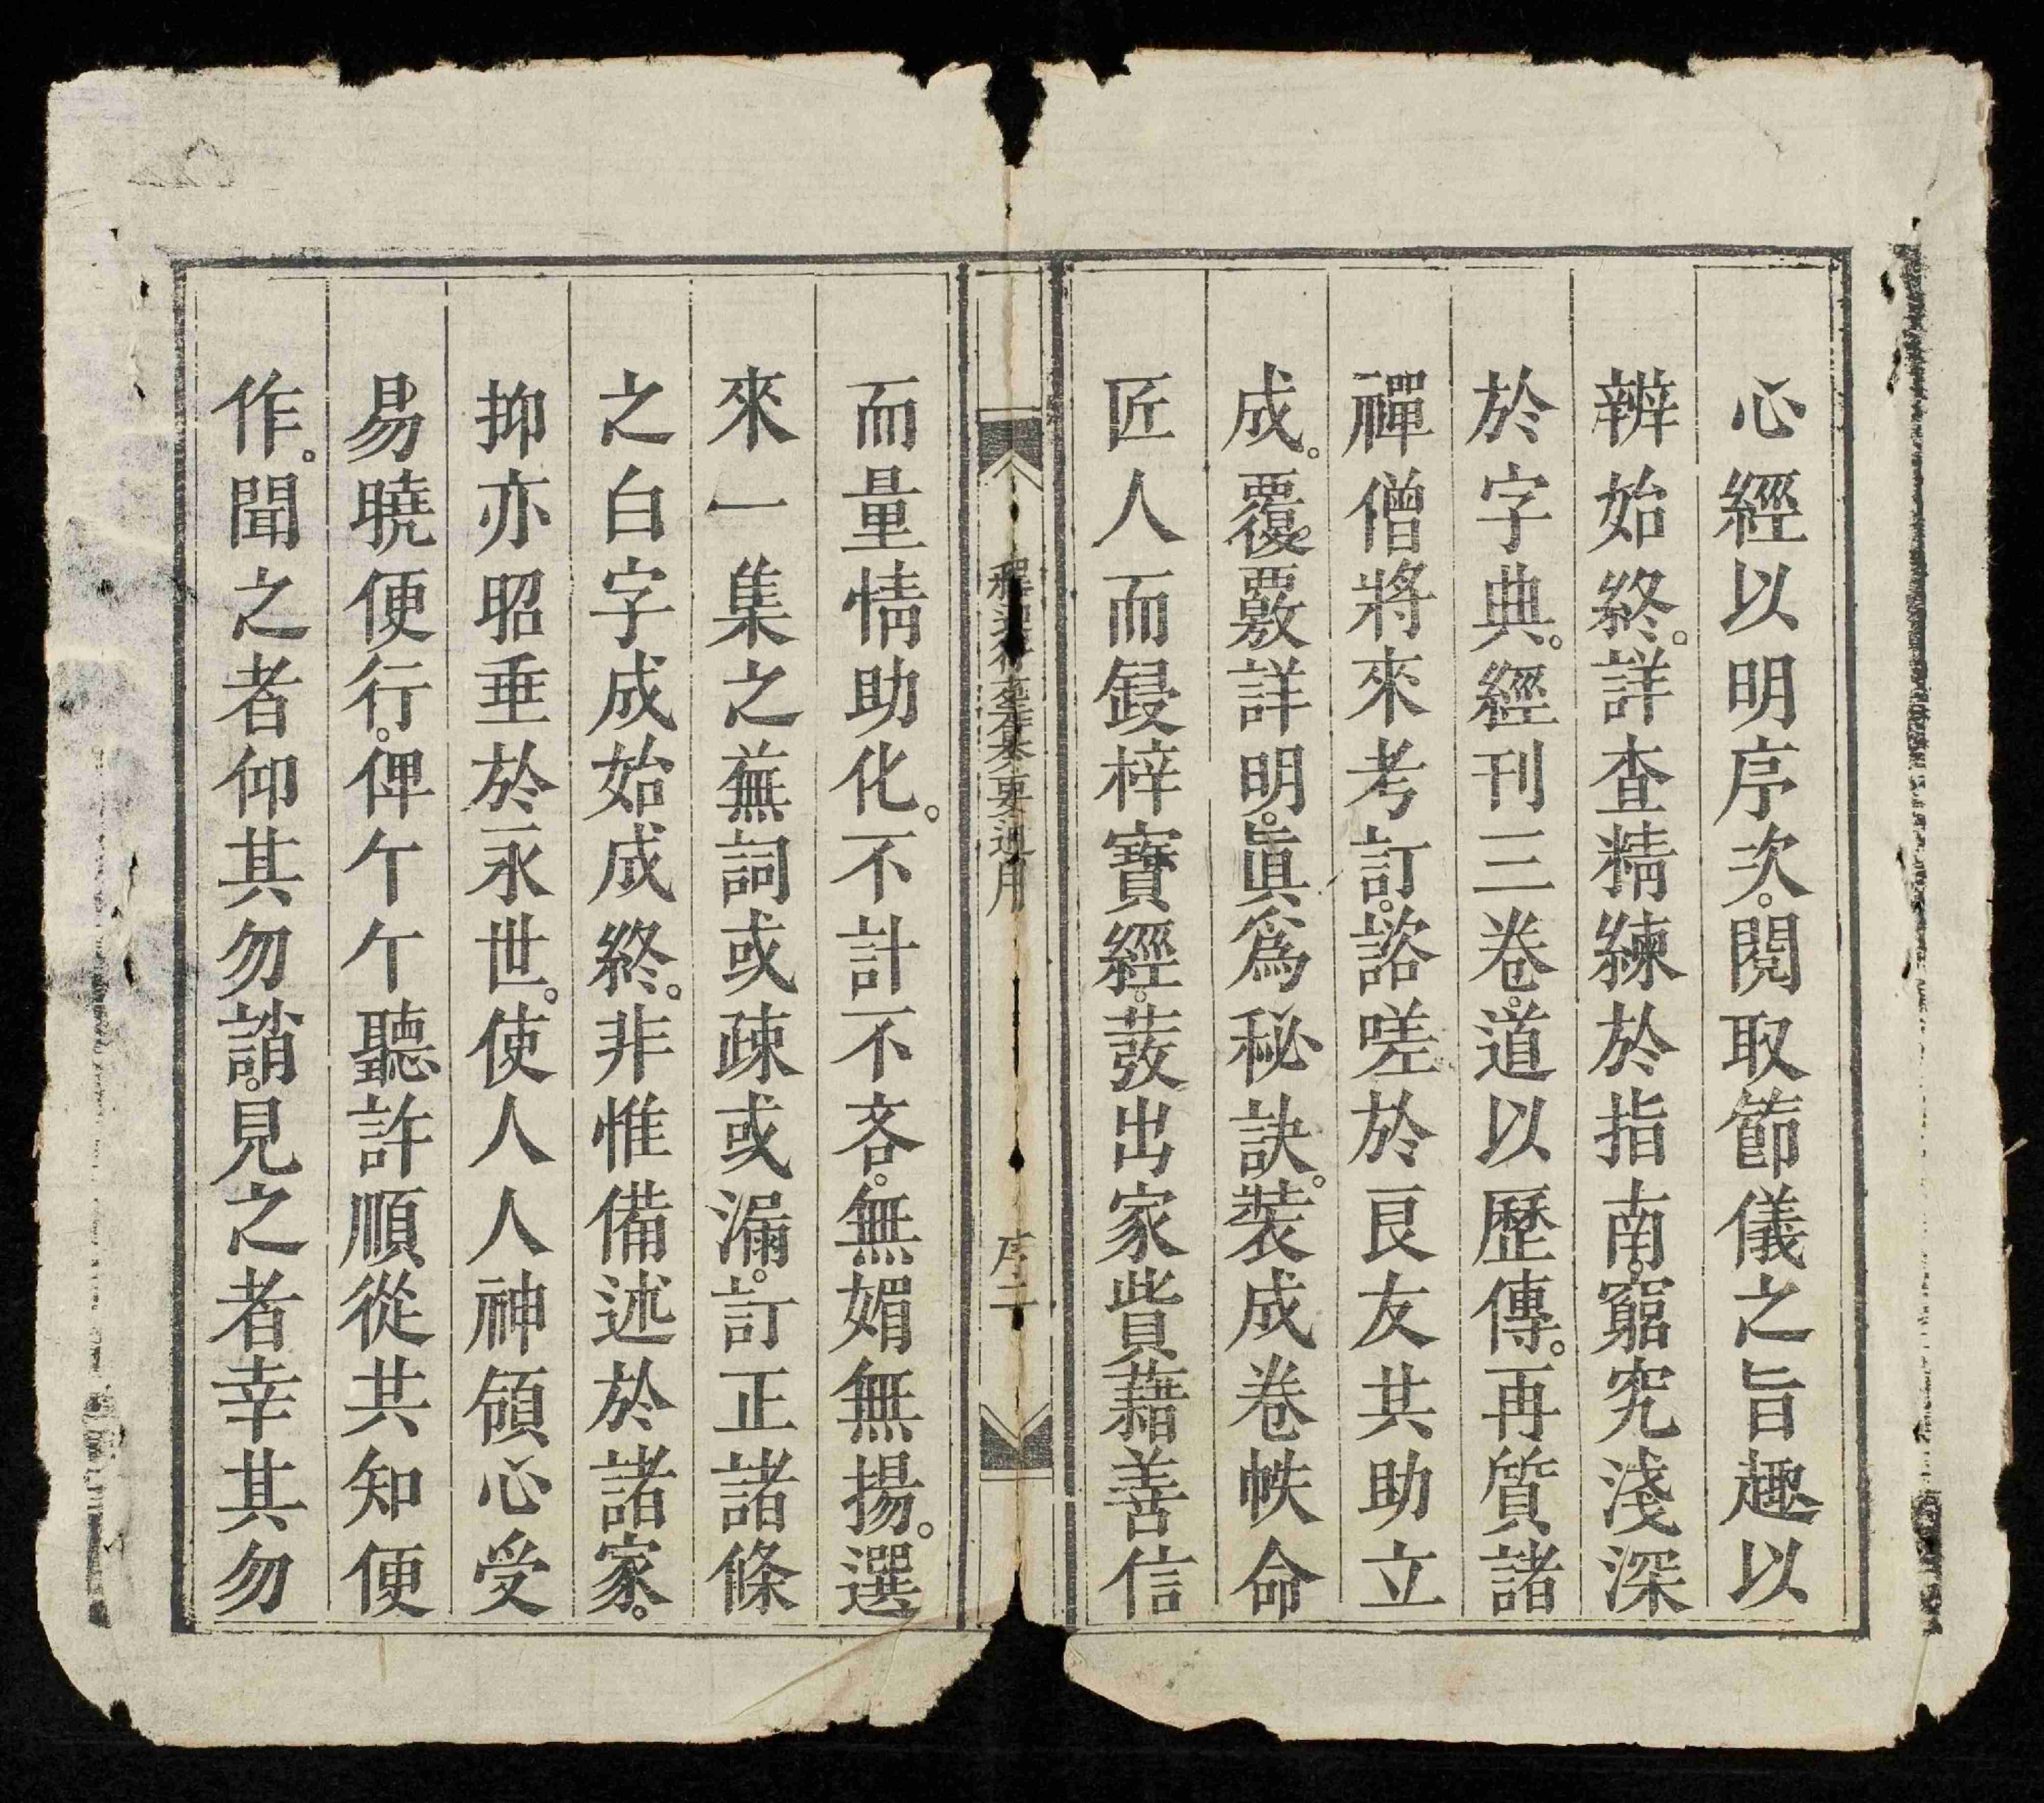 心經以明序次。閱取節儀之旨趣以
辨始終。詳查精練於指南。窮究淺深
於字典。經刊三卷。道以歷傳。再質諸
禪僧將來考訂。諮嗟於良友共助立
成。覆覈詳明。眞爲秘訣。裝成卷帙命
匠人而鋟梓寶經。葼出家貲藉善信
序二
而量情助化。不計不吝。無媚無揚。選
來一集之蕪詞或疎或漏。訂正諸條
之白字成始成終。非惟備述於諸家。
抑亦昭垂於永世。使人人神領心受
易曉便行。俾个个聽許順從共知便
作。聞之者仰其勿誚。見之者幸其勿